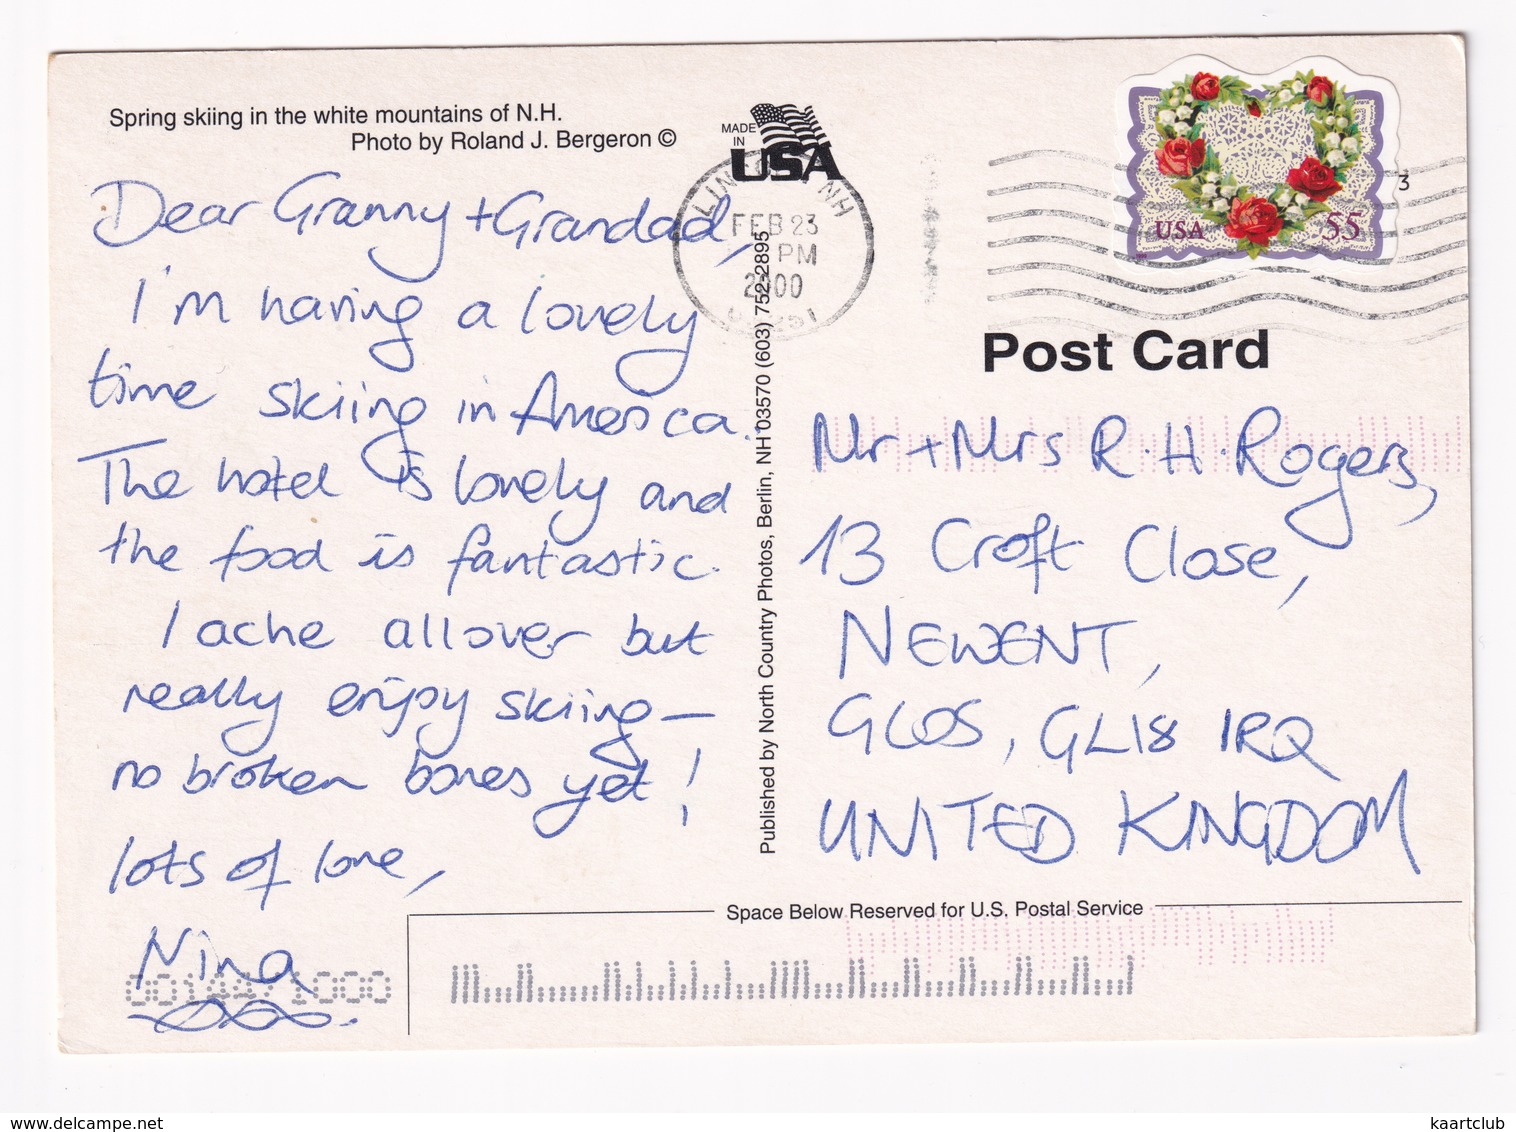 Spring skiing in the white mountains of N.H.
Photo by Roland J. Bergeron ©
Dear Granny + Grandad,
I'm having a lovely
time skiing in America.
The hotel is lovely and
the food is fantastic.
I ache all over but
really enjoy skiing —
no broken bones yet!
lots of love,
Nina
MADE
IN
USA
NH
FEB 23
PM
2000
USA
55
3
Post Card
Mr + Mrs R. H. Rogers,
13 Croft Close,
NEWENT,
GLOS, GL18 1RQ
UNITED KINGDOM
Published by North Country Photos, Berlin, NH 03570 (603) 752-2895
Space Below Reserved for U.S. Postal Service
delcampe.net
kaartclub